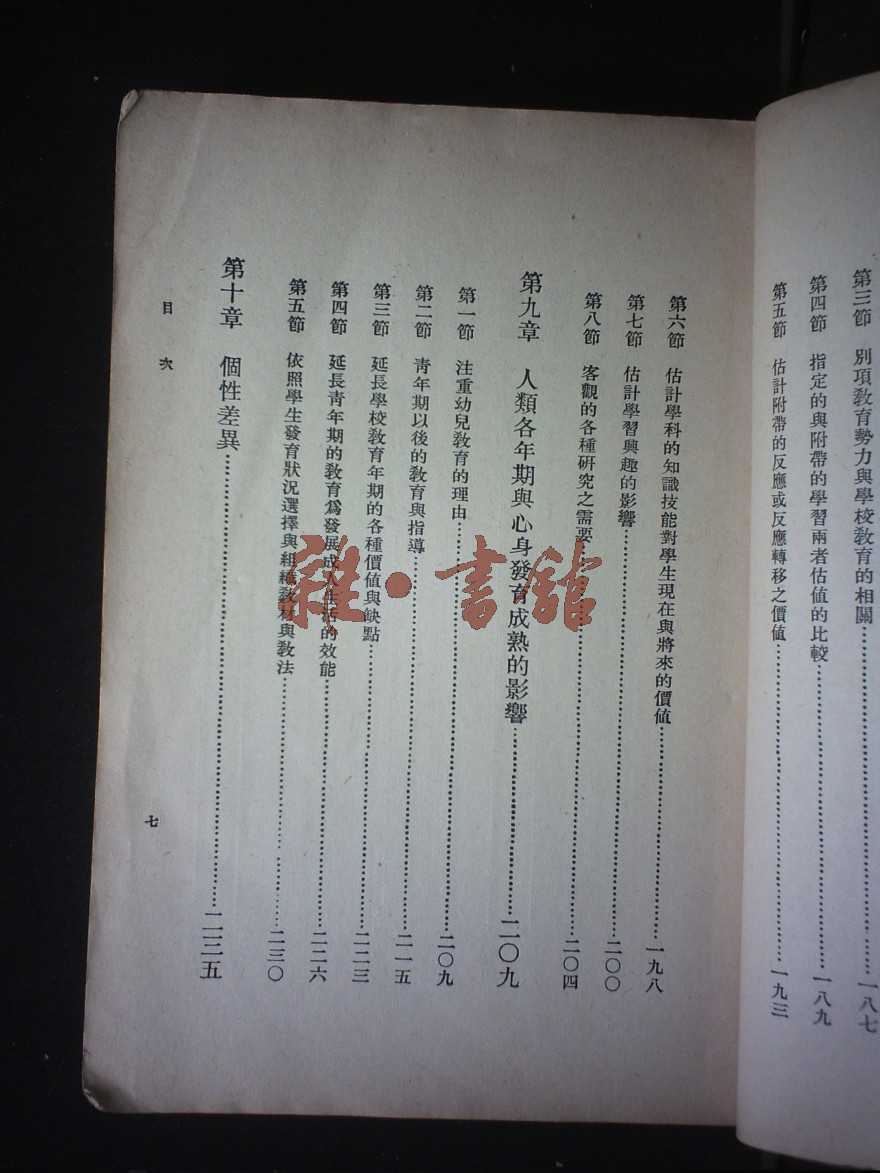 第三節　別項教育勢力與學校教育的相關……一八七
第四節　指定的與附帶的學習兩者估值的比較……一八九
第五節　估計附帶的反應或反應轉移之價值……一九三
第六節　估計學科的知識技能對學生現在與將來的價值……一九八
第七節　估計學習興趣的影響……二〇〇
第八節　客觀的各種研究之需要……二〇四
第九章　人類各年期與心身發育成熟的影響……二〇九
第一節　注重幼兒教育的理由……二〇九
第二節　青年期以後的教育與指導……二一五
第三節　延長學校教育年期的各種價值與缺點……二二三
第四節　延長青年期的教育爲發展成人生活的效能……二二六
第五節　依照學生發育狀況選擇與組織教材與教法……二三〇
第十章　個性差異……二三五
目次
七
雜·書館